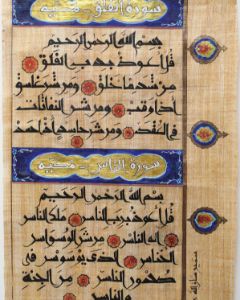 سورة الفلق مكية
بسم الله الرحمن الرحيم
قل أعوذ برب الفلق
من شر ما خلق ومن شر غاسق
إذا وقب ومن شر النفاثات
في العقد ومن شر حاسد إذا حسد
سورة الناس مكية
بسم الله الرحمن الرحيم
قل أعوذ برب الناس ملك الناس
إله الناس من شر الوسواس
الخناس الذي يوسوس في
صدور الناس من الجنة
والناس